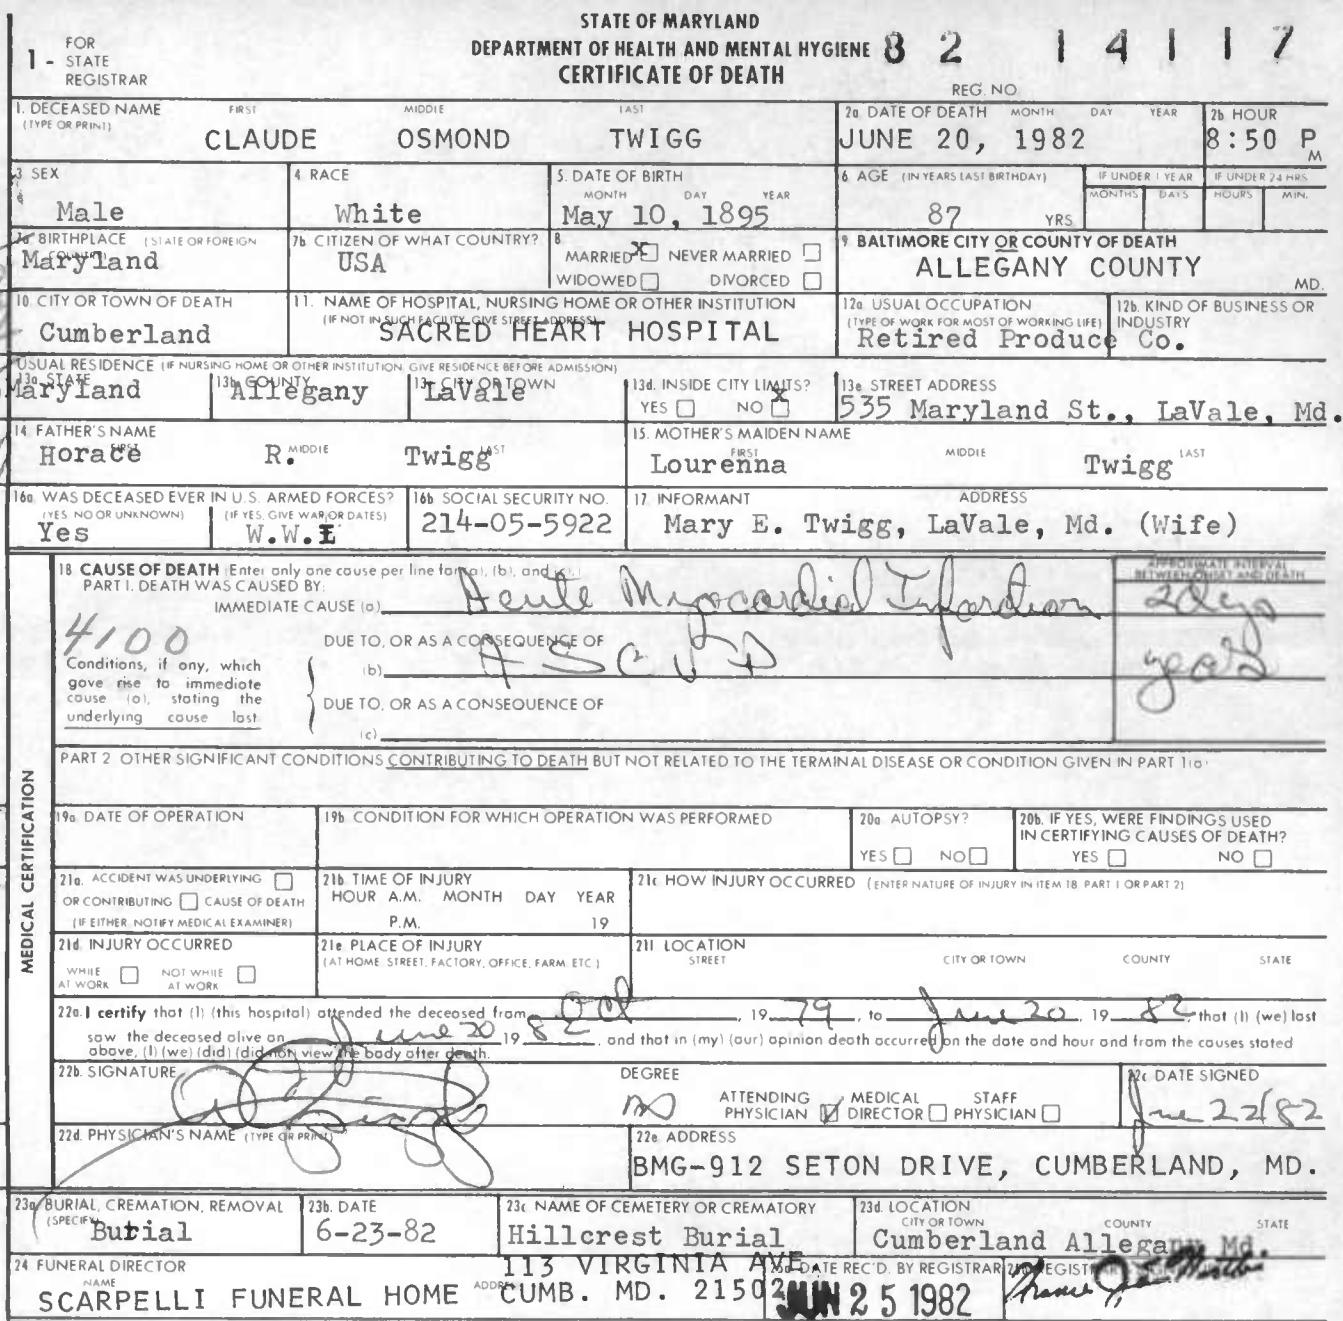 STATE OF MARYLAND
DEPARTMENT OF HEALTH AND MENTAL HYGIENE 82 14117
CERTIFICATE OF DEATH
1 - FOR STATE REGISTRAR
REG. NO
1. DECEASED NAME (TYPE OR PRINT) FIRST MIDDLE LAST
CLAUDE OSMOND TWIGG
2a DATE OF DEATH MONTH DAY YEAR
JUNE 20, 1982
2b HOUR
8:50 P M
3 SEX
Male
4 RACE
White
5. DATE OF BIRTH MONTH DAY YEAR
May 10, 1895
6 AGE (IN YEARS LAST BIRTHDAY)
87 YRS
IF UNDER 1 YEAR MONTHS DAYS
IF UNDER 24 HRS HOURS MIN.
7a BIRTHPLACE (STATE OR FOREIGN COUNTRY)
Maryland
7b CITIZEN OF WHAT COUNTRY?
USA
8 MARRIED X NEVER MARRIED
WIDOWED DIVORCED
9. BALTIMORE CITY OR COUNTY OF DEATH
ALLEGANY COUNTY MD.
10. CITY OR TOWN OF DEATH
Cumberland
11. NAME OF HOSPITAL, NURSING HOME OR OTHER INSTITUTION
(IF NOT IN SUCH FACILITY, GIVE STREET ADDRESS)
SACRED HEART HOSPITAL
12a. USUAL OCCUPATION
(TYPE OF WORK FOR MOST OF WORKING LIFE)
12b. KIND OF BUSINESS OR INDUSTRY
Retired Produce Co.
USUAL RESIDENCE (IF NURSING HOME OR OTHER INSTITUTION GIVE RESIDENCE BEFORE ADMISSION)
13a. STATE
Maryland
13b. COUNTY
Allegany
13c CITY OR TOWN
LaVale
13d. INSIDE CITY LIMITS?
YES NO X
13e STREET ADDRESS
535 Maryland St., LaVale, Md.
14. FATHER'S NAME FIRST MIDDLE LAST
Horace R. Twigg
15. MOTHER'S MAIDEN NAME FIRST MIDDLE LAST
Lourenna Twigg
16a WAS DECEASED EVER IN U.S. ARMED FORCES?
(YES, NO OR UNKNOWN) (IF YES, GIVE WAR OR DATES)
Yes W.W.I
16b SOCIAL SECURITY NO.
214-05-5922
17. INFORMANT ADDRESS
Mary E. Twigg, LaVale, Md. (Wife)
MEDICAL CERTIFICATION
18 CAUSE OF DEATH (Enter only one cause per line for (a), (b), and (c).)
PART I. DEATH WAS CAUSED BY:
APPROXIMATE INTERVAL BETWEEN ONSET AND DEATH
IMMEDIATE CAUSE (a) Acute Myocardial Infarction 2 days
4100
DUE TO, OR AS A CONSEQUENCE OF
(b) ASCVD years
Conditions, if any, which
gave rise to immediate
cause (a), stating the
underlying cause last
DUE TO, OR AS A CONSEQUENCE OF
(c)
PART 2 OTHER SIGNIFICANT CONDITIONS CONTRIBUTING TO DEATH BUT NOT RELATED TO THE TERMINAL DISEASE OR CONDITION GIVEN IN PART 1(a)
19a. DATE OF OPERATION
19b CONDITION FOR WHICH OPERATION WAS PERFORMED
20a AUTOPSY?
YES NO
20b. IF YES, WERE FINDINGS USED
IN CERTIFYING CAUSES OF DEATH?
YES NO
21a. ACCIDENT WAS UNDERLYING
OR CONTRIBUTING CAUSE OF DEATH
(IF EITHER, NOTIFY MEDICAL EXAMINER)
21b TIME OF INJURY
HOUR A.M. MONTH DAY YEAR
P.M. 19
21c HOW INJURY OCCURRED (ENTER NATURE OF INJURY IN ITEM 18 PART 1 OR PART 2)
21d. INJURY OCCURRED
WHILE AT WORK NOT WHILE AT WORK
21e PLACE OF INJURY
(AT HOME, STREET, FACTORY, OFFICE, FARM, ETC.)
21f LOCATION
STREET CITY OR TOWN COUNTY STATE
22a. I certify that (I) (this hospital) attended the deceased from Oct, 1979, to June 20, 1982, that (I) (we) last
saw the deceased alive on June 20 1982, and that in (my) (our) opinion death occurred on the date and hour and from the causes stated
above, (I) (we) (did) (did not) view the body after death.
22b. SIGNATURE
DEGREE
MD
ATTENDING PHYSICIAN ✓ MEDICAL DIRECTOR STAFF PHYSICIAN
22c DATE SIGNED
June 22/82
22d. PHYSICIAN'S NAME (TYPE OR PRINT)
22e ADDRESS
BMG-912 SETON DRIVE, CUMBERLAND, MD.
23a BURIAL, CREMATION, REMOVAL (SPECIFY)
Burial
23b. DATE
6-23-82
23c NAME OF CEMETERY OR CREMATORY
Hillcrest Burial
23d. LOCATION CITY OR TOWN COUNTY STATE
Cumberland Allegany Md.
24 FUNERAL DIRECTOR
NAME ADDRESS
SCARPELLI FUNERAL HOME
113 VIRGINIA AVE
CUMB. MD. 21502
25a DATE REC'D. BY REGISTRAR
JUN 25 1982